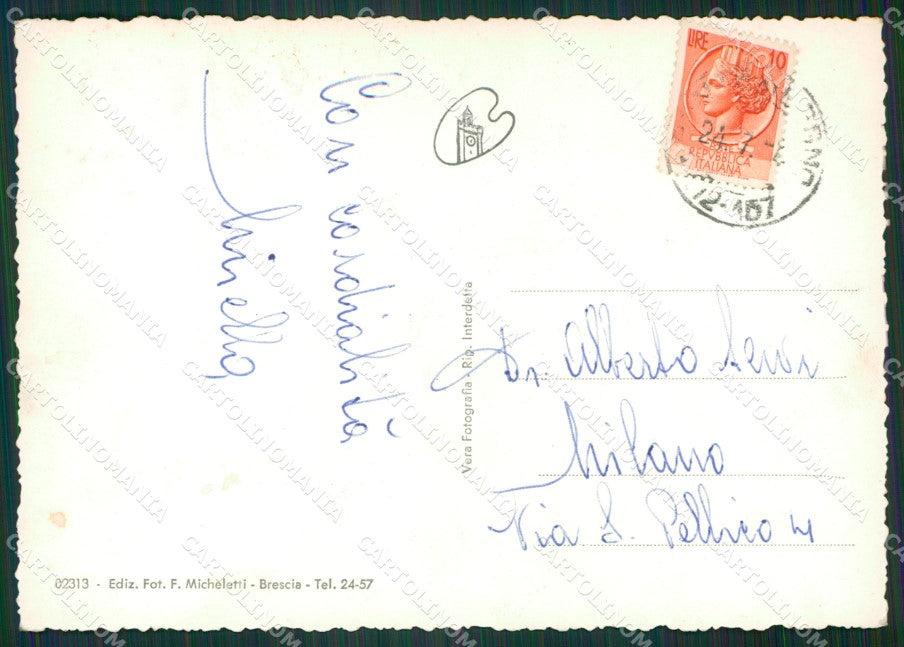 Con cordialità
Mirella
LIRE 10
REPVBBLICA
ITALIANA
24.7
Vera Fotografia - Rip. Interdetta
Dr. Alberto
Milano
Via S. Pellico 4
02313 - Ediz. Fot. F. Micheletti - Brescia - Tel. 24-57
CARTOLINOMANIA